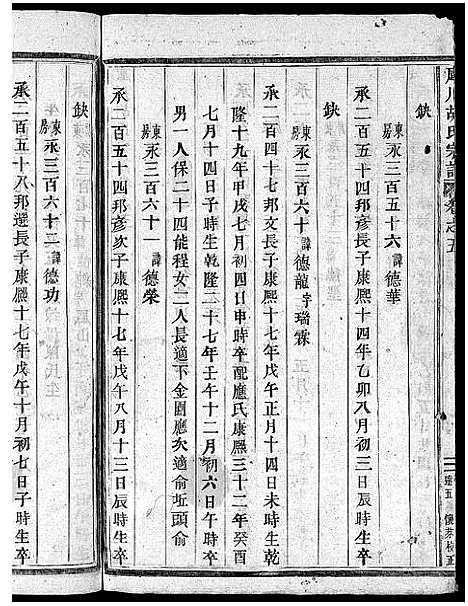 庫川胡氏宗譜 卷之五
缺
東房 永三百五十六 諱德華
承二百五十四邦彥長子康熙十四年乙卯八月初三日辰時生卒
缺
東房 永三百六十 諱德龍字瑞霖
承二百四十七邦文四子康熙十七年戊午正月十四日未時生乾
隆十九年甲戌七月初四日申時卒配應氏康熙三十二年癸酉
七月十四日子時生乾隆二十七年壬午十二月初六日午時卒
男一人保二十四能程女二人長適下金園應次適俞坵頭俞
東房 永三百六十一 諱德榮
承二百五十四邦彥次子康熙十七年戊午八月十三日辰時生卒
缺
東房 永三百六十二 諱德功
承二百五十八邦選長子康熙十七年戊午十月初七日子時生卒